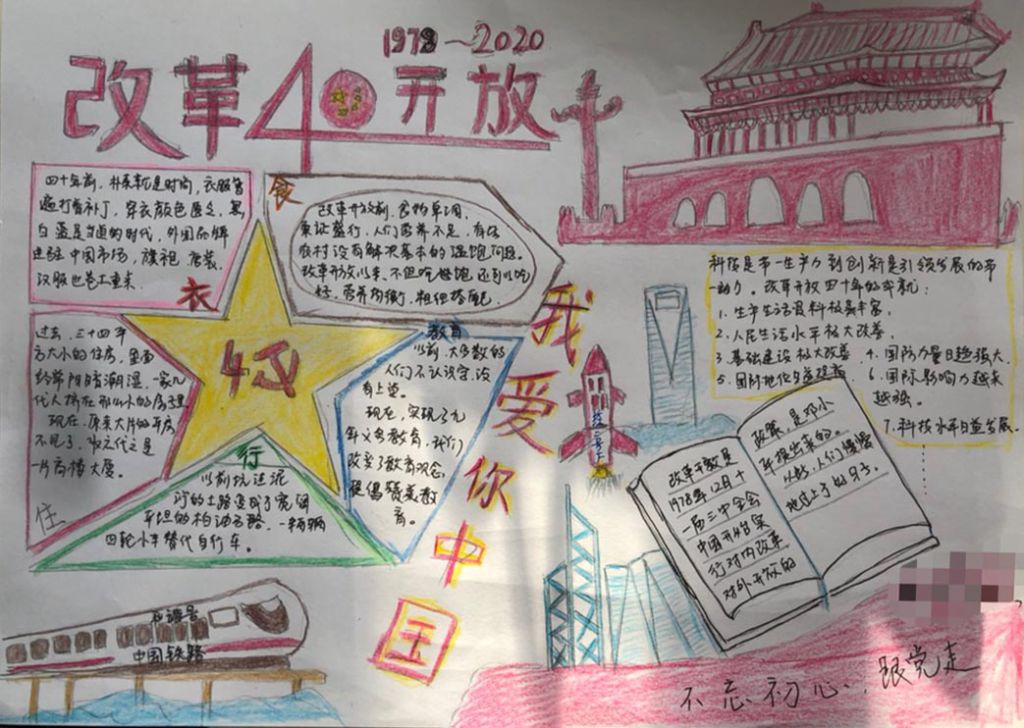 1978~2020
改革40开放
四十年前，朴素就是时尚，衣服普
遍打着补丁，穿衣颜色匮乏，黑
白蓝是当道的时代，外国品牌
进驻中国市场，旗袍 唐装
汉服也卷土重来
衣
食
改革开放前，食物单调，
票证盛行，人们营养不足，有的
农村没有解决基本的温饱问题。
改革开放以来，不但吃得饱还可以吃
好，营养均衡，粗细搭配
过去，三十四平
方大小的住房，里面
经常阴暗潮湿，一家几
代人挤在那小小的房里
现在，原来大片的平房
不见了，取而代之是
一片高楼大厦。
住
40
教育
以前，大多数的
人们不认识字，没
有上学。
现在，实现了九
年义务教育，我们
改变了教育观念，
提倡素质教
育。
行
以前坑洼泥
泞的土路变成了宽阔
平坦的柏油马路，一辆辆
四轮小车替代自行车。
我
爱
你
中
国
科技是第一生产力到创新是引领发展的第
一动力。改革开放四十年的成就：
1. 生产生活资料极其丰富，
2. 人民生活水平极大改善，
3. 基础建设极大改善 4. 国防力量日趋强大
5. 国际地位日益提高 6. 国际影响力越来
越强。
7. 科技水平日益发展
改革开放是
1978年12月十
一届三中全会
中国开始实
行对内改革
对外开放的
政策，是邓小
平提出来的。
从此，人们慢慢
地过上了好日子。
中国铁路
不忘初心，跟党走